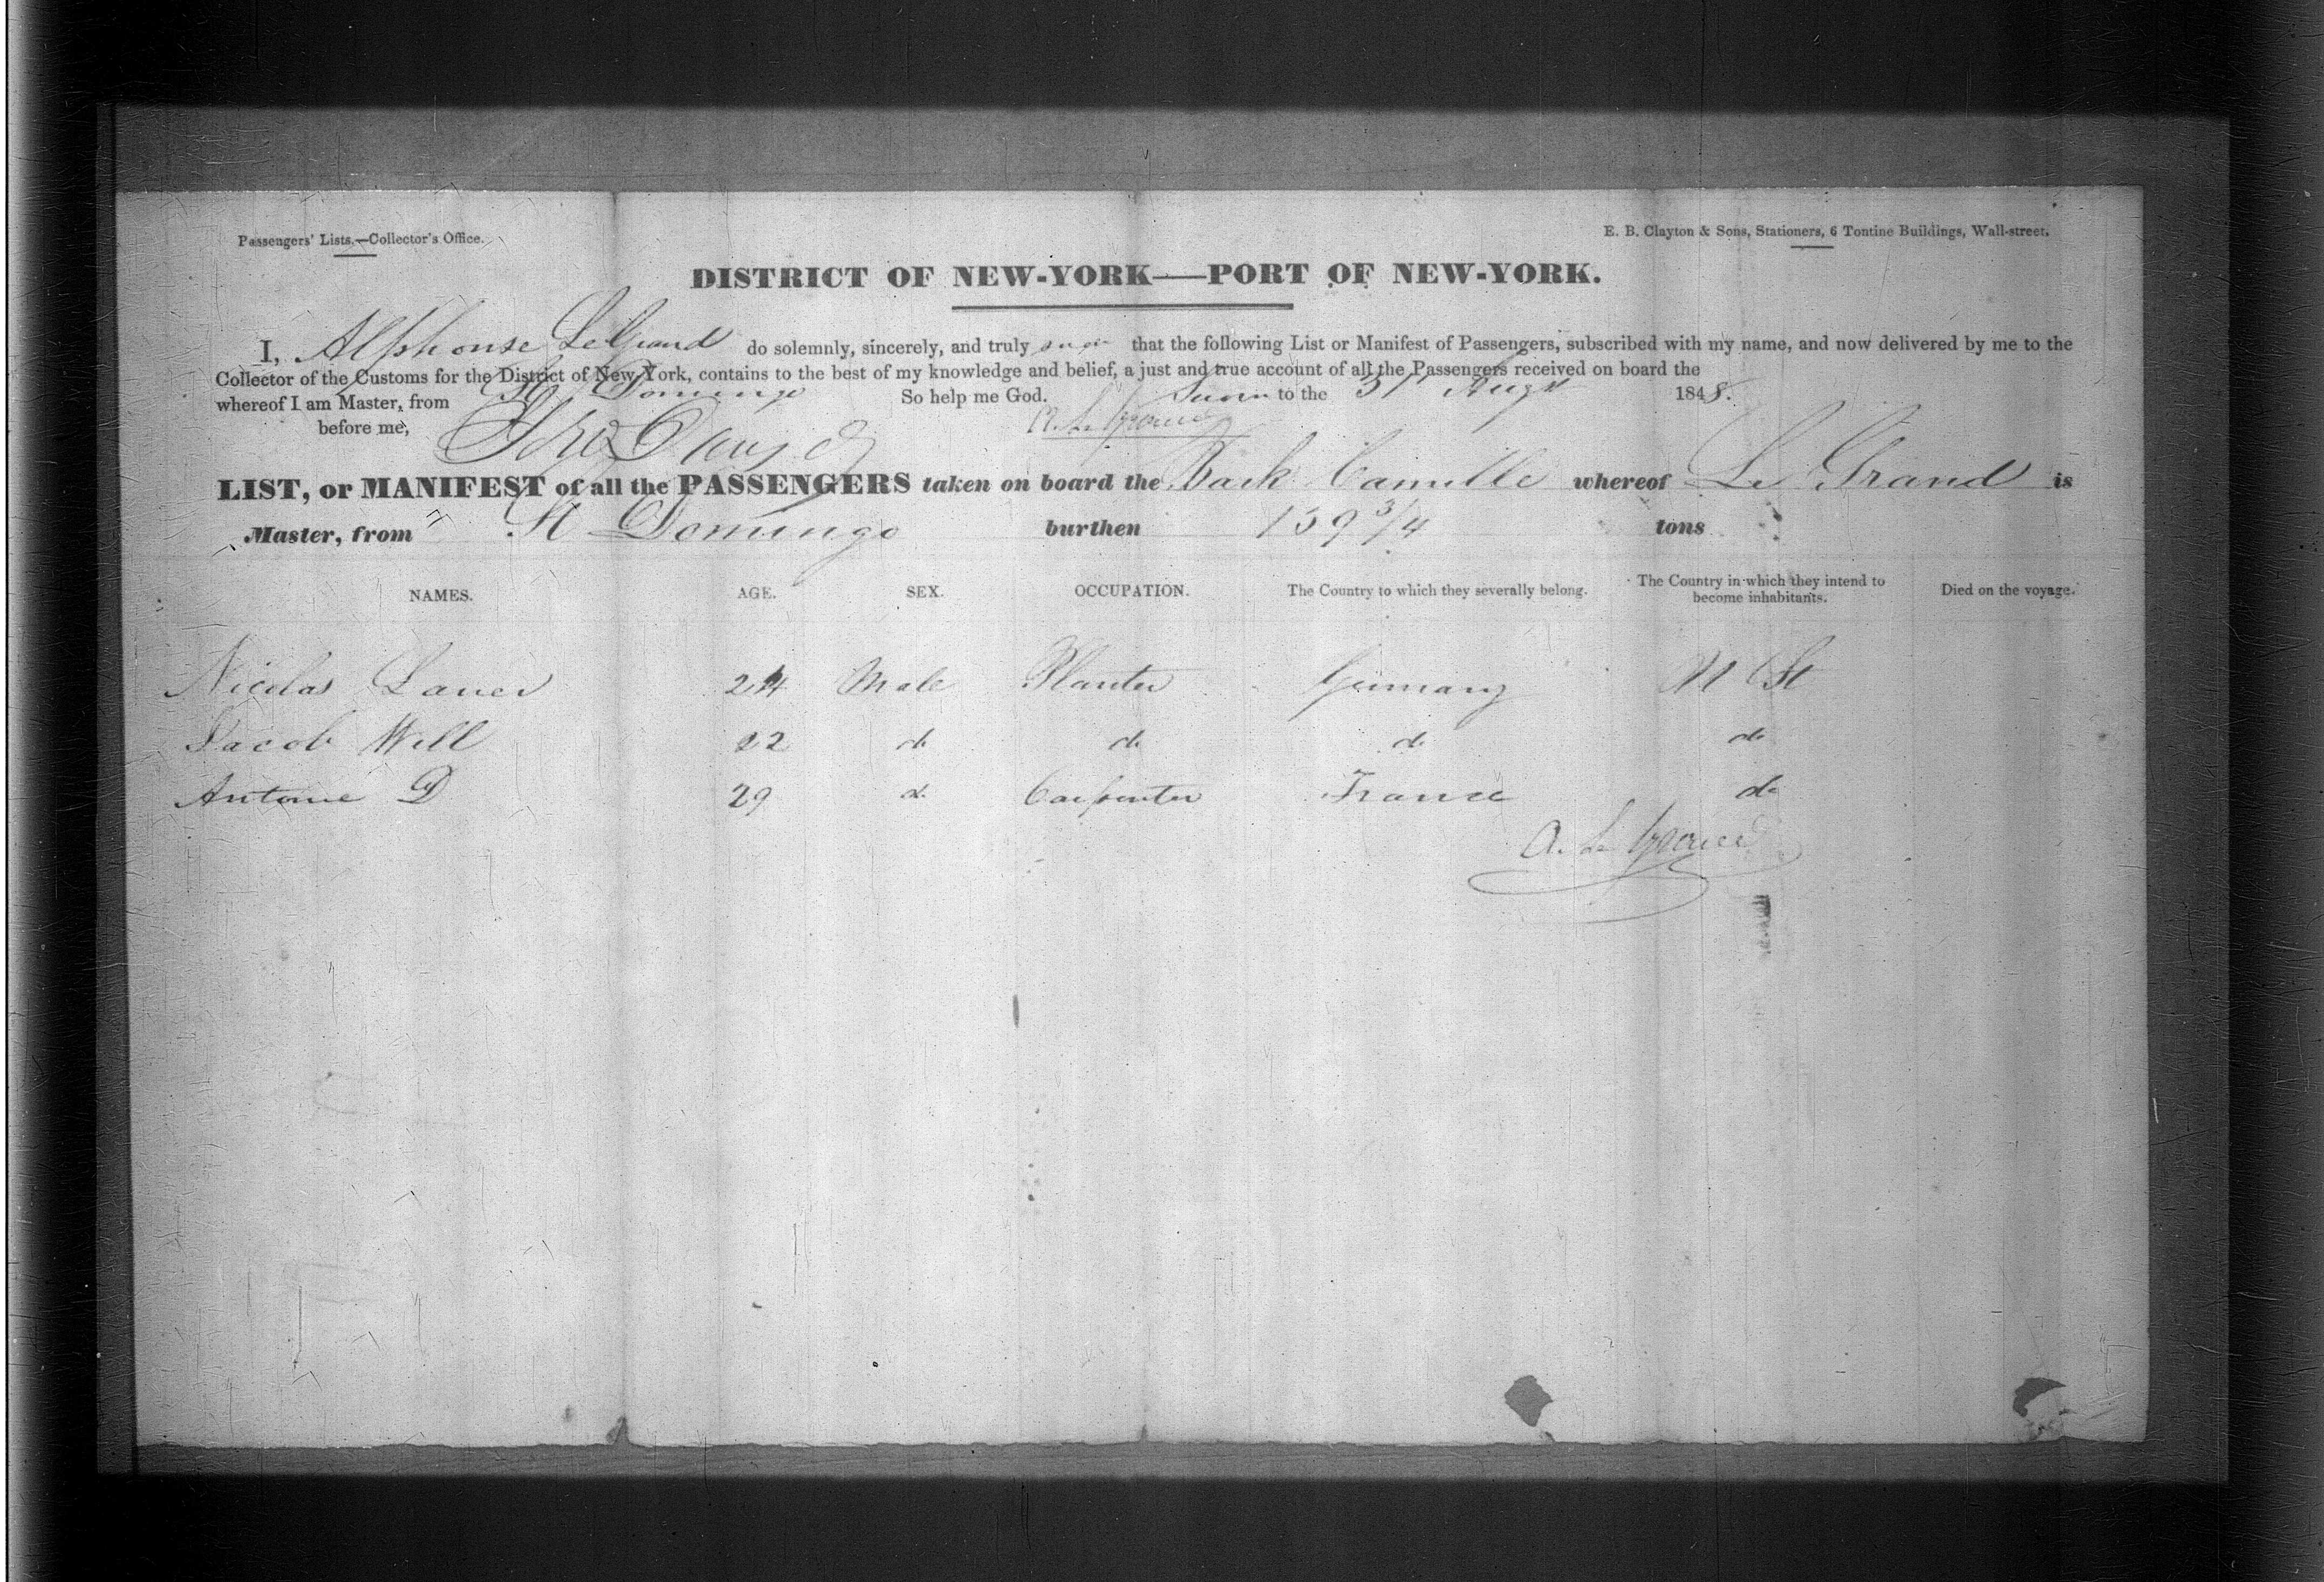 Passengers' Lists.—Collector's Office.
E. B. Clayton & Sons, Stationers, 6 Tontine Buildings, Wall-street.
DISTRICT OF NEW-YORK——PORT OF NEW-YORK.
I, Alphonse LeGrand do solemnly, sincerely, and truly swear that the following List or Manifest of Passengers, subscribed with my name, and now delivered by me to the
Collector of the Customs for the District of New-York, contains to the best of my knowledge and belief, a just and true account of all the Passengers received on board the
whereof I am Master, from St Domingo So help me God. Sworn to the 31st Augt 1848.
before me,
LIST, or MANIFEST of all the PASSENGERS taken on board the Bark Camille whereof Le Grand is
Master, from St Domingo burthen 139 3/4 tons
NAMES. AGE. SEX. OCCUPATION. The Country to which they severally belong. The Country in which they intend to become inhabitants. Died on the voyage.
Nicolas Lauer 24 Male Planter Germany U St
Jacob Will 22 do do do do
Antoine D 29 do Carpenter France do
A. Le Grand